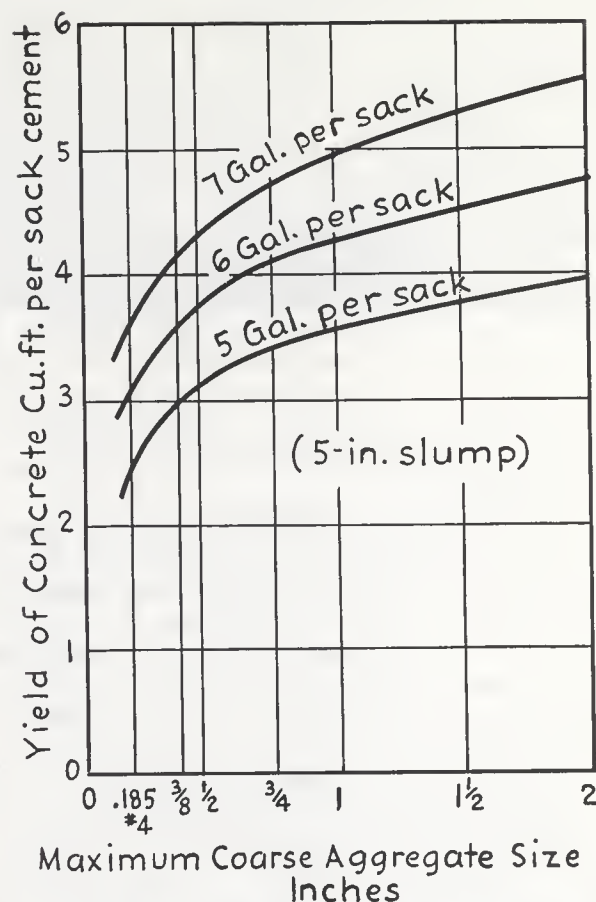 Yield of Concrete Cu.ft. per sack cement
6
5
4
3
2
1
0
7 Gal. per sack
6 Gal. per sack
5 Gal. per sack
(5-in. slump)
0 .185 3/8 1/2 3/4 1 1 1/2 2
#4
Maximum Coarse Aggregate Size
Inches